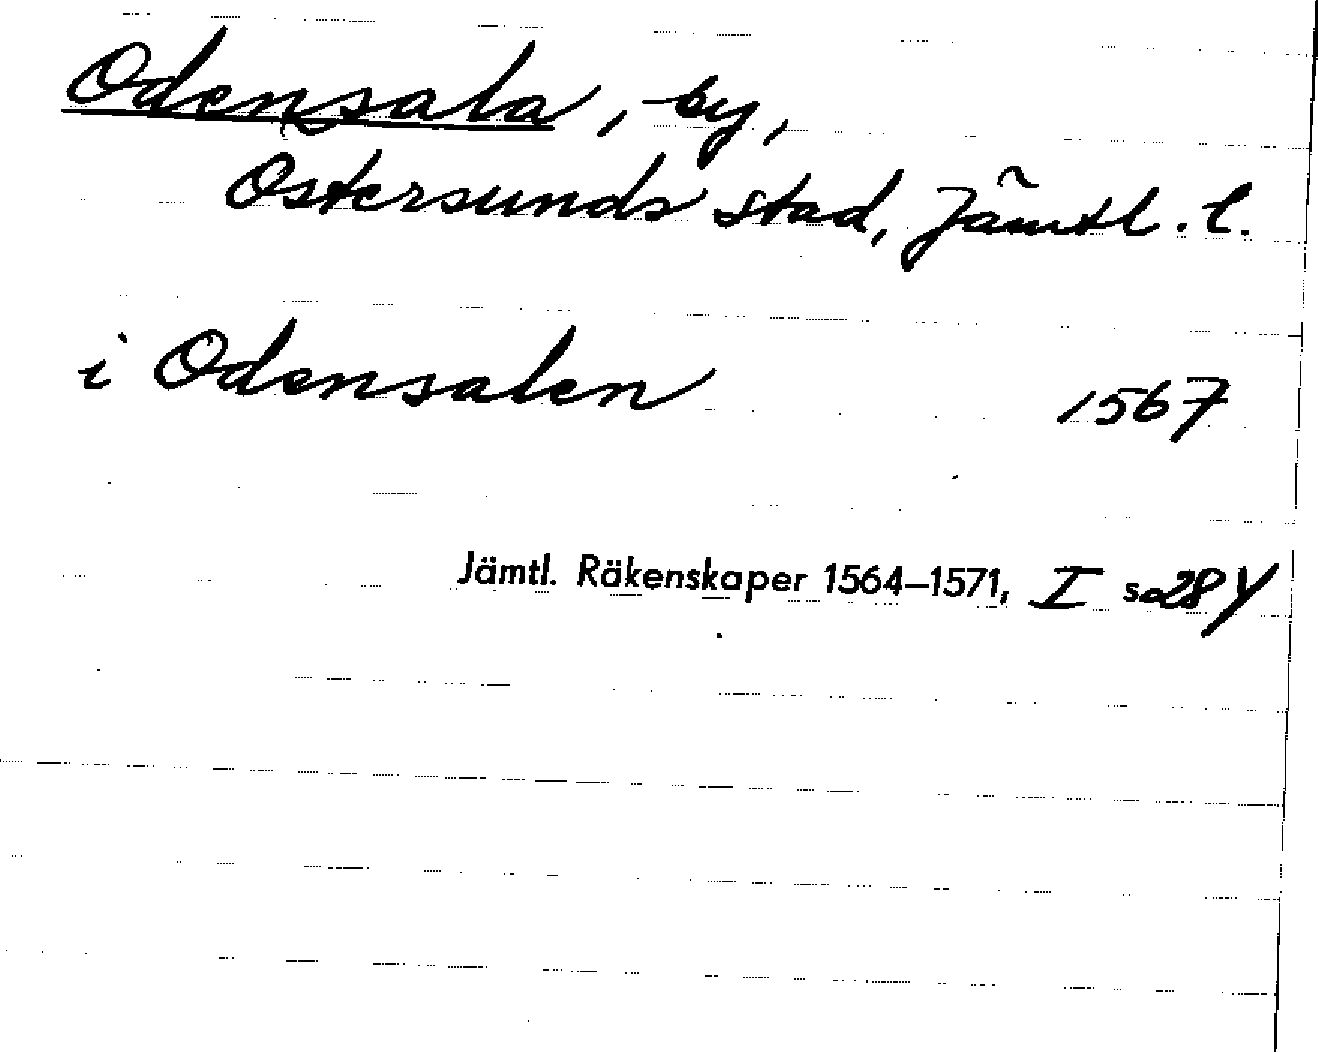 Odensala, by,
Östersunds stad, Jämtl. l.
i Odensalen 1567
Jämtl. Räkenskaper 1564–1571, I s. 28 y